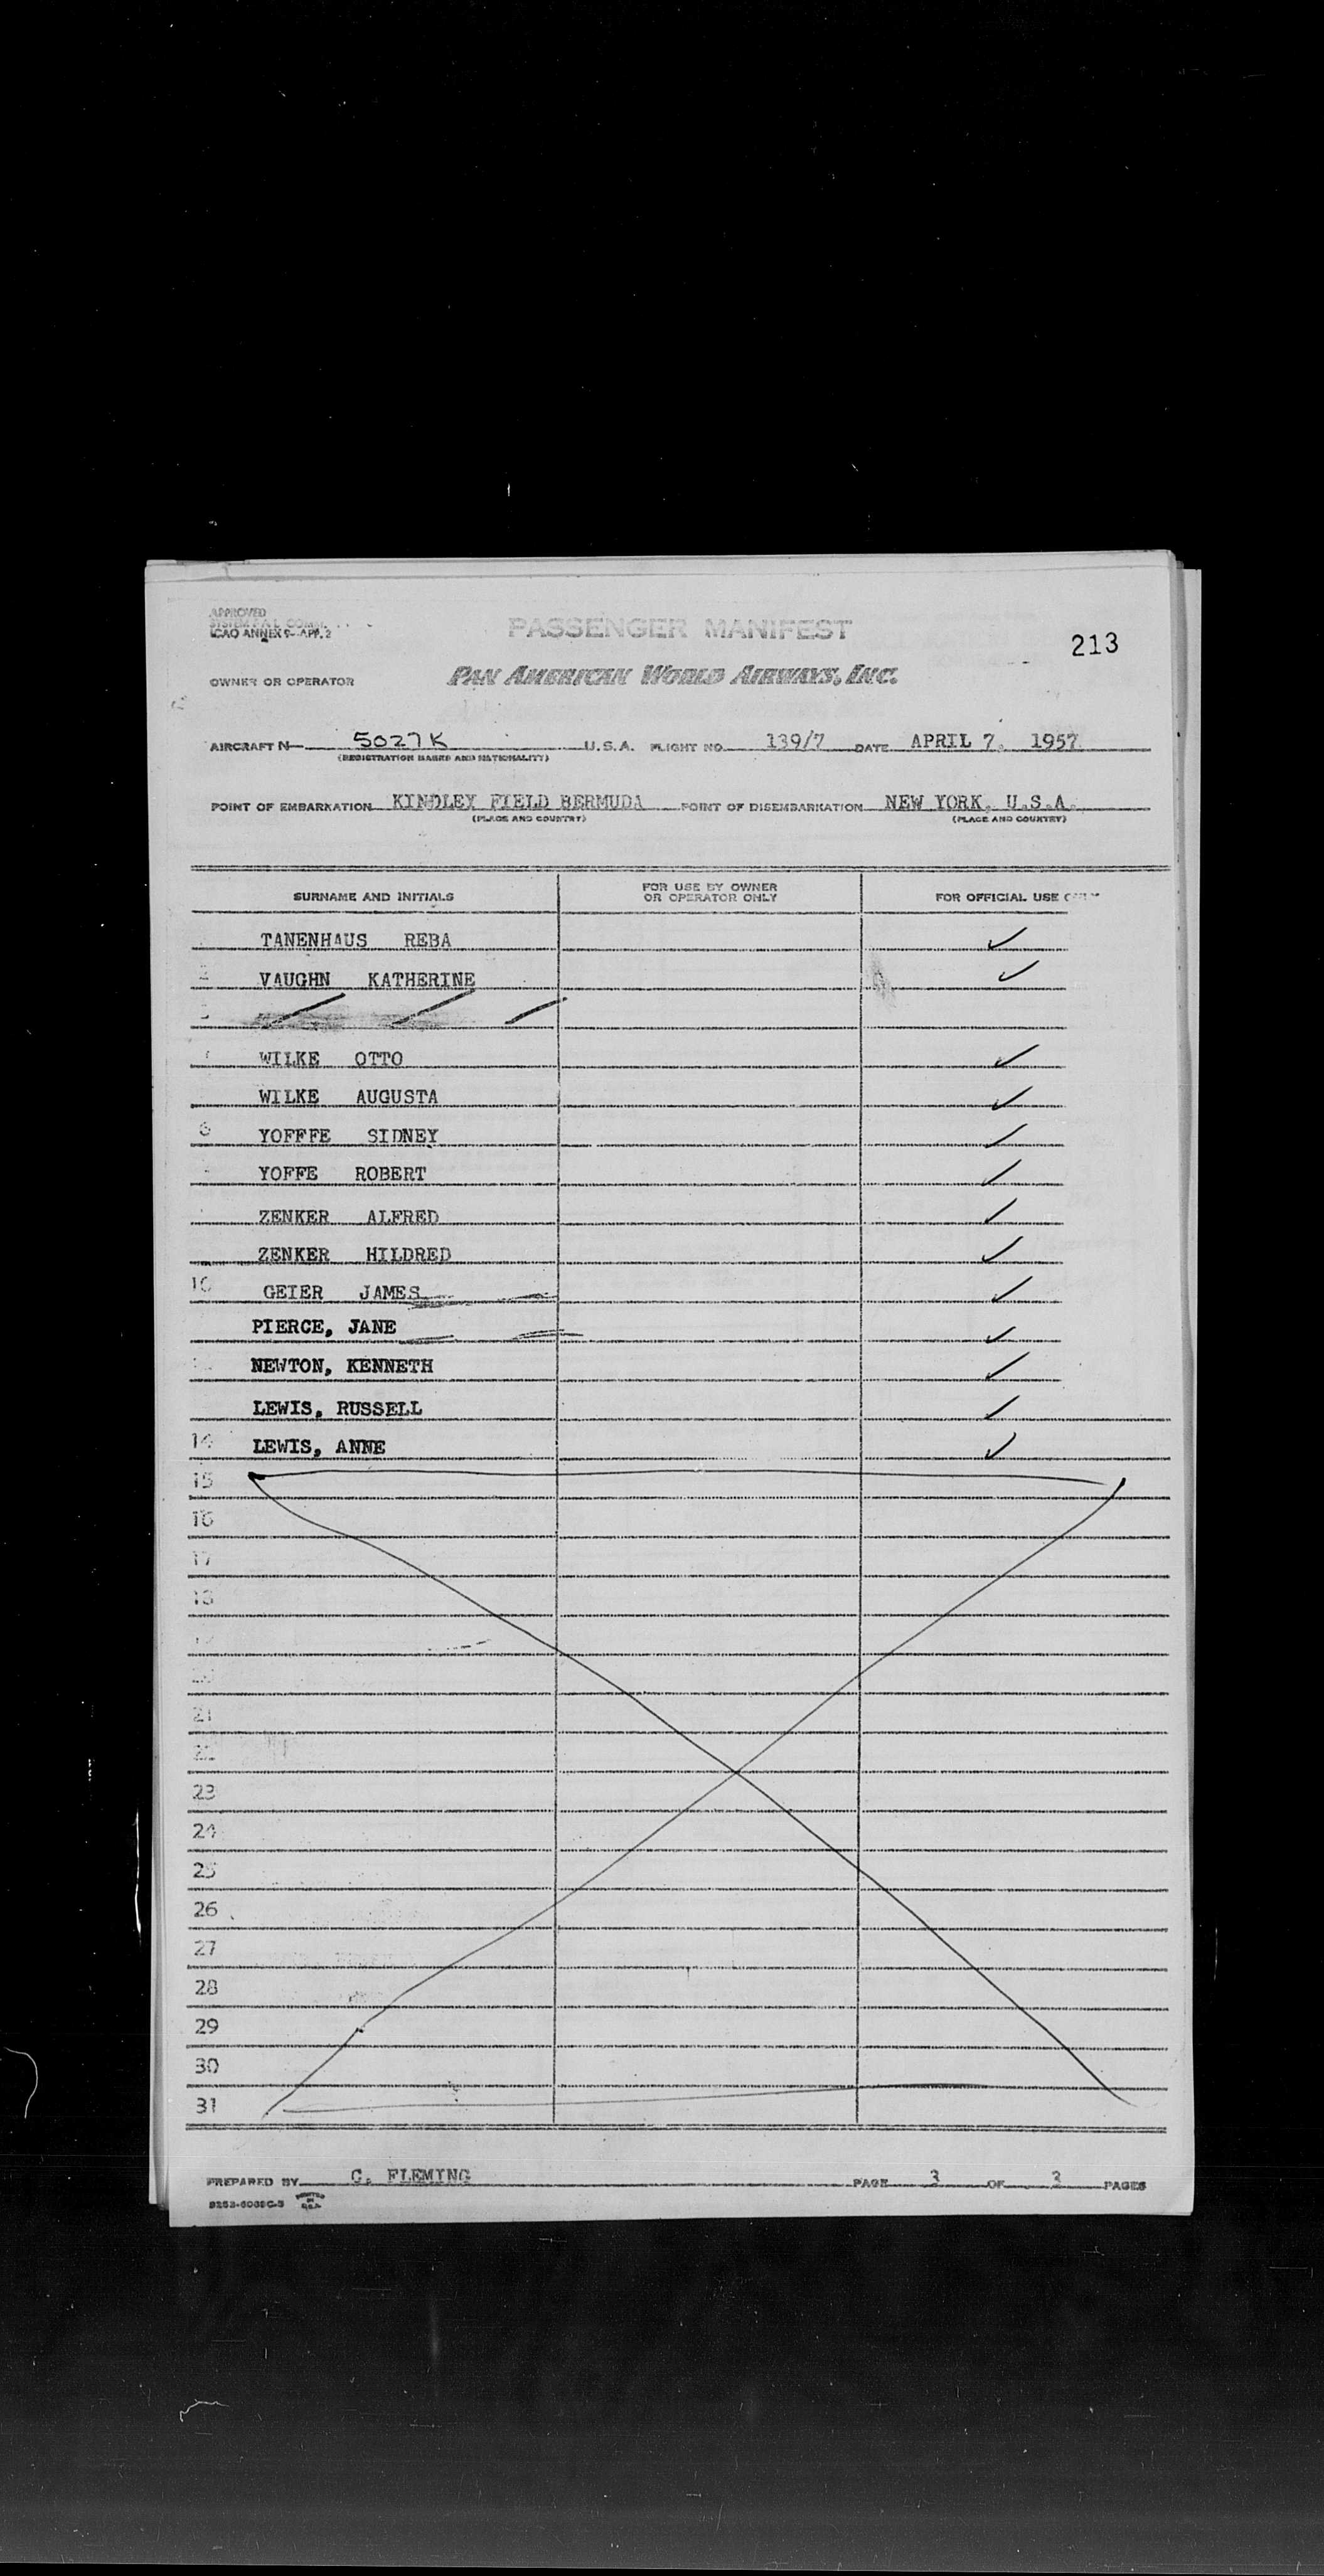 APPROVED
SYSTEM F.A.L. COMM.
ICAO ANNEX 9- APP. 2
PASSENGER MANIFEST
213
OWNER OR OPERATOR PAN AMERICAN WORLD AIRWAYS, INC.
AIRCRAFT N— 5027K U.S.A. FLIGHT NO. 139/7 DATE APRIL 7. 1957
(REGISTRATION MARKS AND NATIONALITY)
POINT OF EMBARKATION KINDLEY FIELD BERMUDA POINT OF DISEMBARKATION NEW YORK. U.S.A.
(PLACE AND COUNTRY) (PLACE AND COUNTRY)
SURNAME AND INITIALS FOR USE BY OWNER OR OPERATOR ONLY FOR OFFICIAL USE
TANENHAUS REBA ✓
2 VAUGHN KATHERINE ✓
3
WILKE OTTO ✓
WILKE AUGUSTA ✓
6 YOFFFE SIDNEY ✓
YOFFE ROBERT ✓
ZENKER ALFRED ✓
ZENKER HILDRED ✓
10 GEIER JAMES ✓
PIERCE, JANE ✓
NEWTON, KENNETH ✓
LEWIS, RUSSELL ✓
14 LEWIS, ANNE ✓
15
16
17
18
19
20
21
22
23
24
25
26
27
28
29
30
31
PREPARED BY C. FLEMING PAGE 3 OF 3 PAGES
PRINTED IN U.S.A.